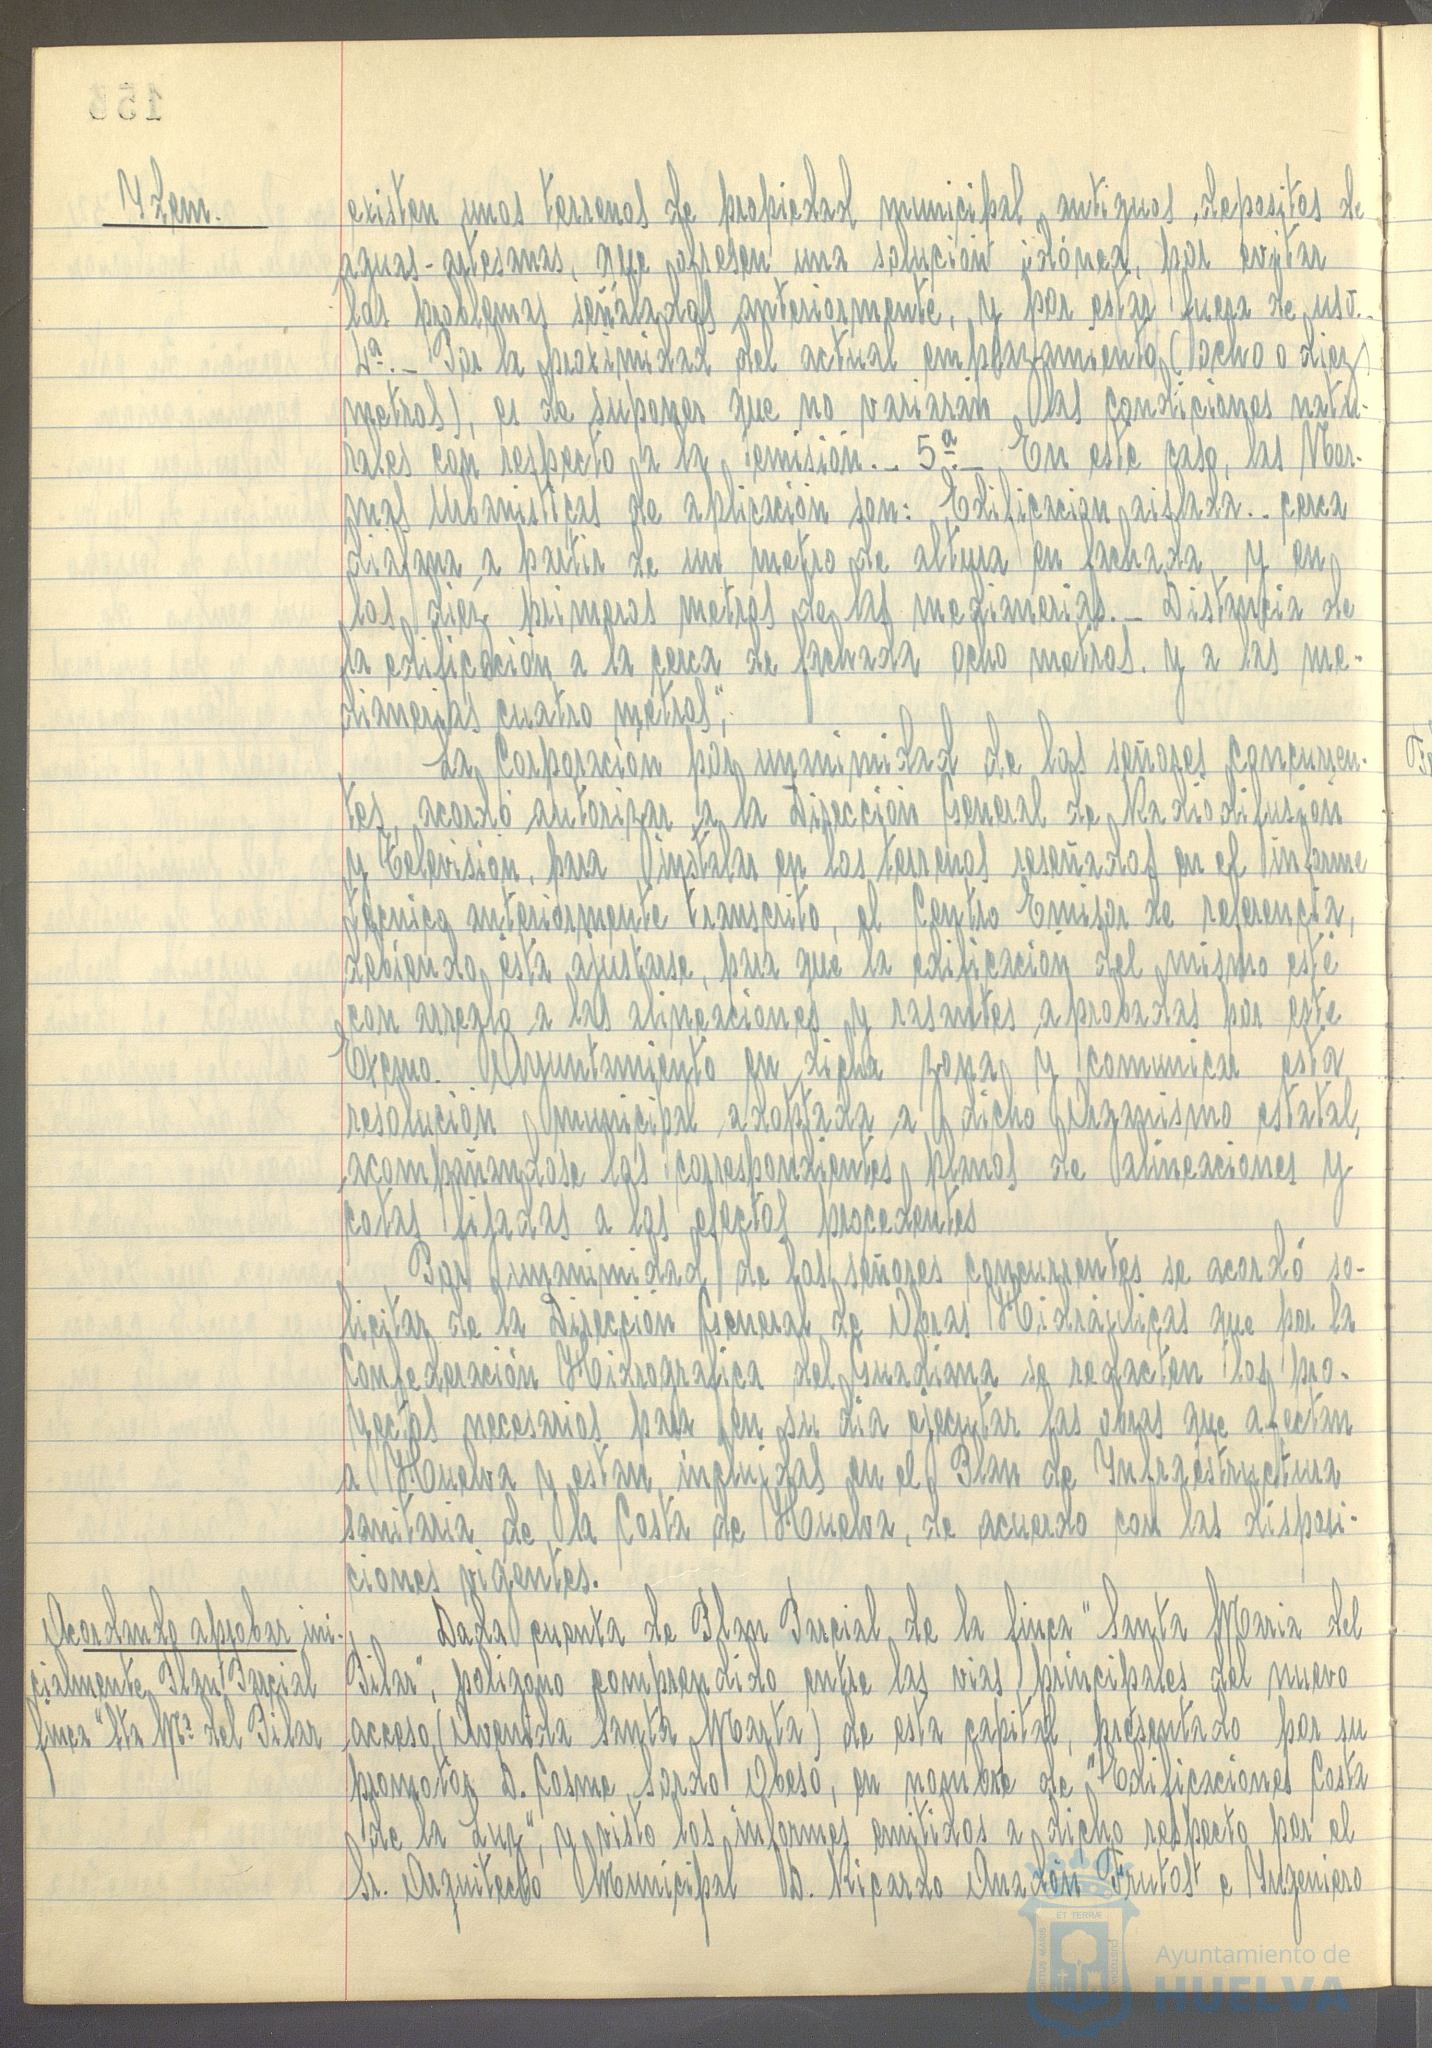 Ydem.
existen unos terrenos de propiedad municipal, antiguos depositos de
aguas-artesanas, que ofresen una solución idónea, por evitar
los problemas señalados anteriormente, y por estar fuera de uso.-
4ª.- Por la proximidad del actual emplazamiento (ocho o diez
metros), es de suponer que no variaran las condiciones natu-
rales con respecto a la emisión.- 5ª.- En este caso, las Nor-
mas Urbanisticas de aplicación son: Edificacion aislada.- cerca
diafana a partir de un metro de altura en fachada y en
los diez primeros metros de las medianerias.- Distancia de
la edificación a la cerca de fachada ocho metros. y a las me-
dianerias cuatro metros",
La Corporación por unanimidad de los señores concurren-
tes, acordó autorizar a la Dirección General de Radiodifusión
y Televisión, para instalar en los terrenos reseñados en el informe
técnico anteriormente transcrito, el Centro Emisor de referencia,
debiendo esta ajustarse, para que la edificación del mismo esté
con arreglo a las alineaciones y rasantes aprobadas por este
Excmo. Ayuntamiento en dicha zona y comunicar esta
resolución municipal adoptada a dicho Organismo estatal,
acompañandose los correspondientes planos de alineaciones y
cotas fijadas a los efectos procedentes
Por unanimidad de los señores concurrentes se acordó so-
licitar de la Dirección General de Obras Hidráulicas que por la
Confederación Hidrografica del Guadiana se redacten los pro-
yectos necesarios para en su dia ejecutar las obras que afectan
a Huelva y estan incluidas en el Plan de Infraestructura
sanitaria de la Costa de Huelva, de acuerdo con las disposi-
ciones vigentes.
Acordando aprobar ini-
cialmente Plan Parcial
finca "Sta Mª del Pilar
Dada cuenta de Plan Parcial de la finca "Santa Maria del
Pilar", poligono comprendido entre las vias principales del nuevo
acceso, (Avenida Santa Marta) de esta capital, presentado por su
promotor D. Cosme Sordo Obeso, en nombre de "Edificaciones Costa
de la Luz", y visto los informes emitidos a dicho respecto por el
Sr. Arquitecto Municipal D. Ricardo Anadón Frutos e Ingeniero
ET TERRÆ
Ayuntamiento de
HUELVA